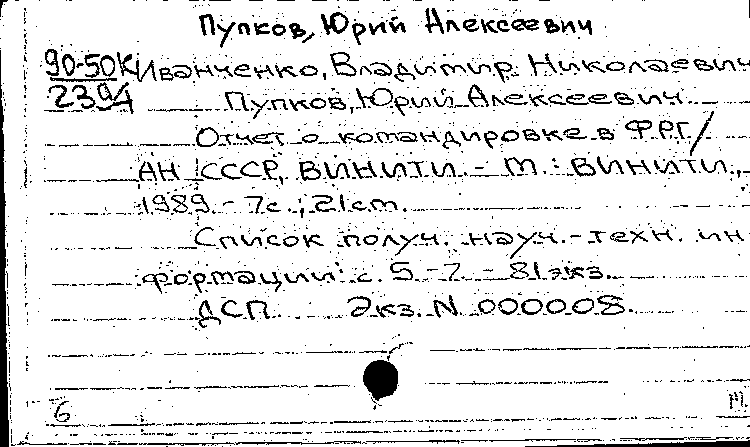 Пупков, Юрий Алексеевич
90-50К Иванченко, Владимир Николаевич
239А Пупков, Юрий Алексеевич
Отчет о командировке в ФРГ/
АН СССР, ВИНИТИ. - М.: ВИНИТИ,
1989. - 7с.; 21см.
Список получ. науч.-техн. ин
формации: с. 5-7. - 81экз.
ДСП Экз. N 000008.
6 М.